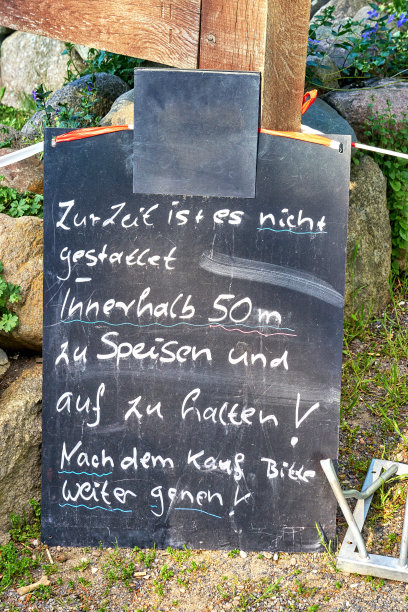 Zur Zeit ist es nicht
gestattet
Innerhalb 50m
zu Speisen und
auf zu halten!
Nach dem Kauf Bitte
Weiter gehen!